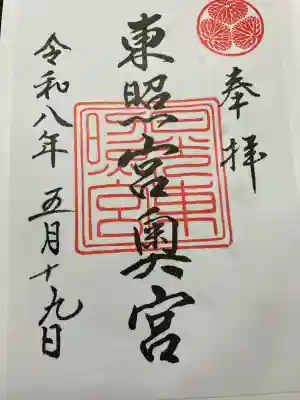 奉拝
東照宮奥宮
令和八年 五月十九日